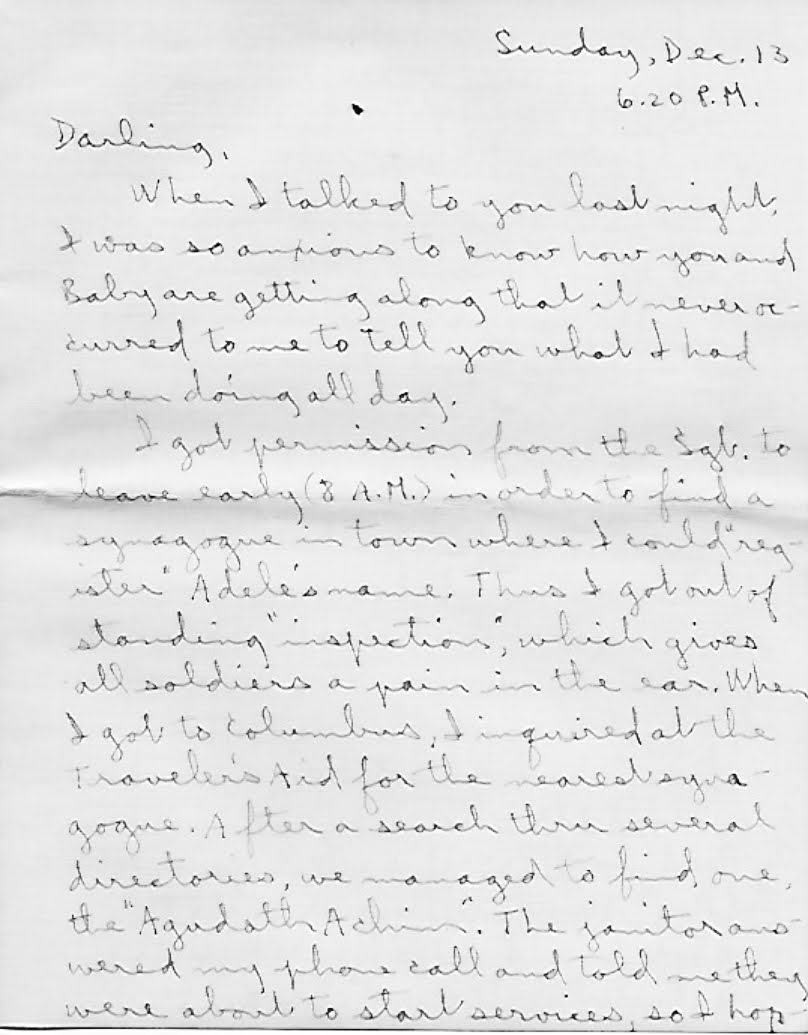 Sunday, Dec. 13
6.20 P.M.
Darling,
When I talked to you last night,
I was so anxious to know how you and
Baby are getting along that it never oc-
curred to me to tell you what I had
been doing all day.
I got permission from the Sgt. to
leave early (8 A.M.) in order to find a
synagogue in town where I could "reg-
ister" Adele's name. Thus I got out of
standing "inspection", which gives
all soldiers a pain in the ear. When
I got to Columbus, I inquired at the
Traveler's Aid for the nearest syna-
gogue. After a search thru several
directories, we managed to find one,
the "Agudath Achim". The janitor ans-
wered my phone call and told me they
were about to start services, so I hop-